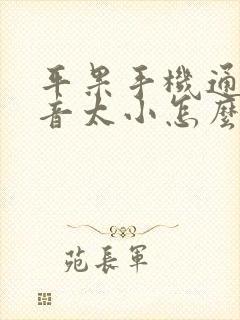 平果手機通
音太小怎麼
苑長軍